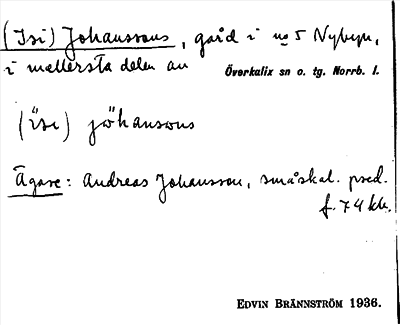 (Isi) Johanssons, gård i no 5 Nybyn,
i mellersta delen av
Överkalix sn o. tg. Norrb. l.
(ïsi) jöhansons
Ägare: Andreas Johansson, småskal. pred.
f. 74
EDVIN BRÄNNSTRÖM 1936.